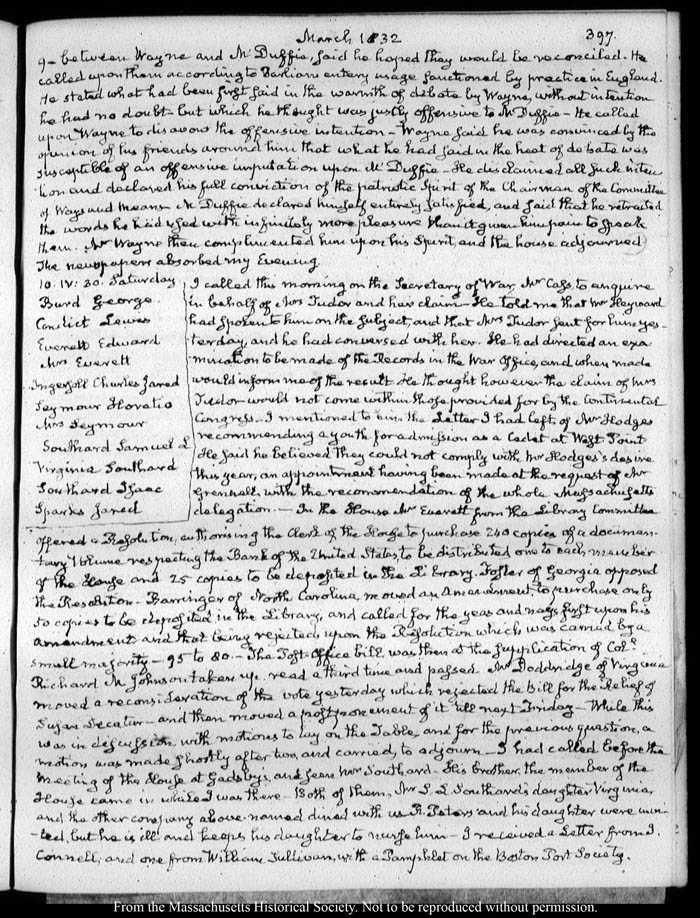 March 1832
397.
9 - between Wayne and Mc Duffie, said he hoped they would be reconciled. He
called upon them according to Parliamentary usage sanctioned by practice in England.
He stated what had been first said in the warmth of debate by Wayne, without intention
he had no doubt but which he thought was justly offensive to Mc Duffie - He called
upon Wayne to disavow the offensive intention - Wayne said he was convinced by the
opinion of his friends around him that what he had said in the heat of debate was
susceptible of an offensive imputation upon Mc Duffie - He disclaimed all such inten
tion and declared his full conviction of the patriotic Spirit of the Chairman of the Committee
of Ways and Means - Mc Duffie declared himself entirely satisfied, and said that he retracted
the words he had used with infinitely more pleasure than it gave him pain to speak
them. Mr Wayne then complimented him upon his Spirit, and the house adjourned
The newspapers absorbed my Evening.
10. IV: 30. Saturday
Burd George
Condict Lewis
Everett Edward
Mrs Everett
Ingersoll Charles Jared
Seymour Horatio
Mrs Seymour
Southard Samuel L
Virginia Southard
Southard Isaac
Sparks Jared
I called this morning on the Secretary of War, Mr Cass, to enquire
in behalf of Mrs Tudor and her claim - He told me that Mr Heyward
had spoken to him on the subject, and that Mrs Tudor sent for him yes-
terday, and he had conversed with her. He had directed an exa
mination to be made of the Records in the War Office, and when made
would inform me of the result. He thought however the claim of Mrs
Tudor would not come within those provided for by the Continental
Congress - I mentioned to him the Letter I had left of Mr Hodges
recommending a youth for admission as a Cadet at West Point
He said he believed they could not comply with Mr Hodges's desire
this year, an appointment having been made at the request of Mr
Grennell, with the recommendation of the whole Massachusetts
delegation. - In the House Mr Everett from the Library Committee
offered a Resolution, authorising the Clerk of the House to purchase 240 copies of a documen-
tary Volume respecting the Bank of the United States to be distributed one to each member
of the House and 25 copies to be deposited in the Library. Foster of Georgia opposed
the Resolution - Barringer of North Carolina, moved an Amendment, to purchase only
50 copies to be deposited in the Library, and called for the yeas and nays first upon his
amendment and that being rejected, upon the Resolution which was carried by a
small majority - 95 to 80. - The Post-Office bill, was then at the supplication of Col.
Richard M. Johnson taken up, read a third time and passed. Mr Doddridge of Virginia
moved a reconsideration of the vote yesterday which rejected the Bill for the Relief of
Susan Decatur - and then moved a postponement of it till next Friday - While this
was in discussion with motions to lay on the Table, and for the previous question, a
motion was made shortly after two, and carried, to adjourn - I had called before the
meeting of the House at Gadsby's, and seen Mr Southard - His brother, the member of the
House came in while I was there - Both of them, Mr S. L. Southard's daughter Virginia,
and the other company above named dined with us. R. Peters and his daughter were invi-
-ted, but he is ill and keeps his daughter to nurse him - I received a Letter from J.
Connell; and one from William Sullivan, with a Pamphlet on the Boston Port Society.
From the Massachusetts Historical Society. Not to be reproduced without permission.